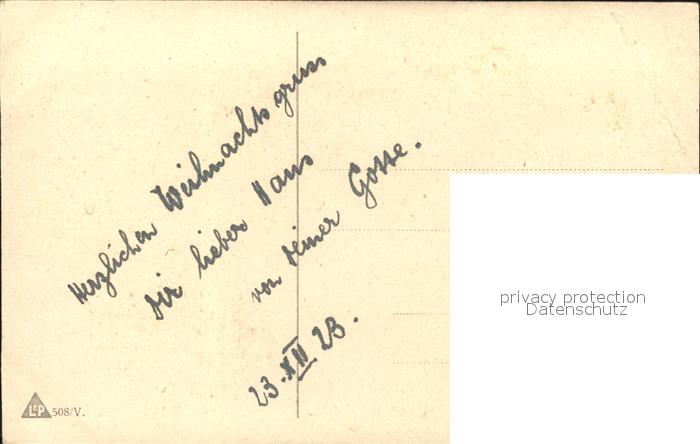 Herzlichen Weihnachtsgruss
Dir lieber Hans
von deiner Gotte.
23. XII 23.
privacy protection
Datenschutz
L&P 508/V.